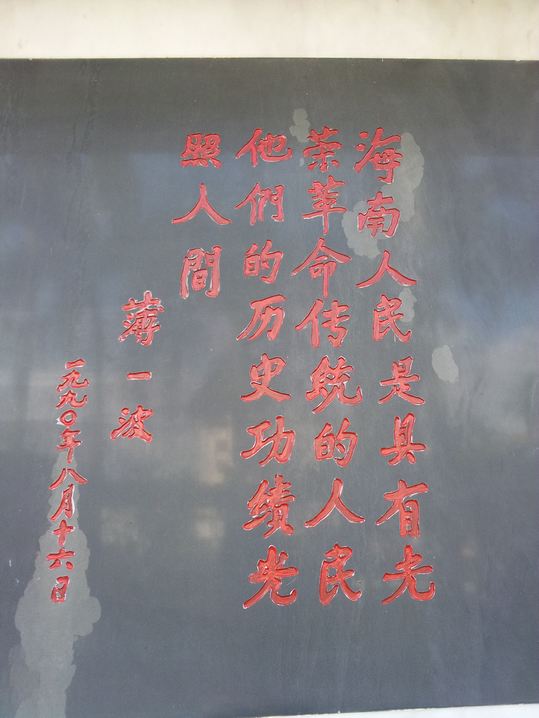 海南人民是具有光
荣革命传统的人民
他們的历史功绩光
照人間
薄一波
一九九〇年八月十六日